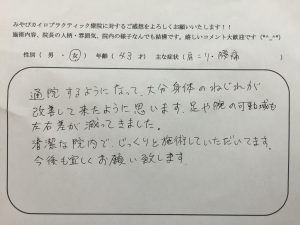 みやびカイロプラクティック療院に対するご感想をよろしくお願いいたします!!
施術内容、院長の人柄・雰囲気、院内の様子なんでも結構です。嬉しいコメント大歓迎です (*^_^*)
性別 ( 男 ・ 女 ) 年齢 ( 43 才) 主な症状 ( 肩こり・腰痛 )
通院するようになって、大分身体のねじれが
改善して来たように思います。足や腕の可動域も
左右差が減ってきました。
清潔な院内で、じっくりと施術していただいてます。
今後も宜しくお願い致します。